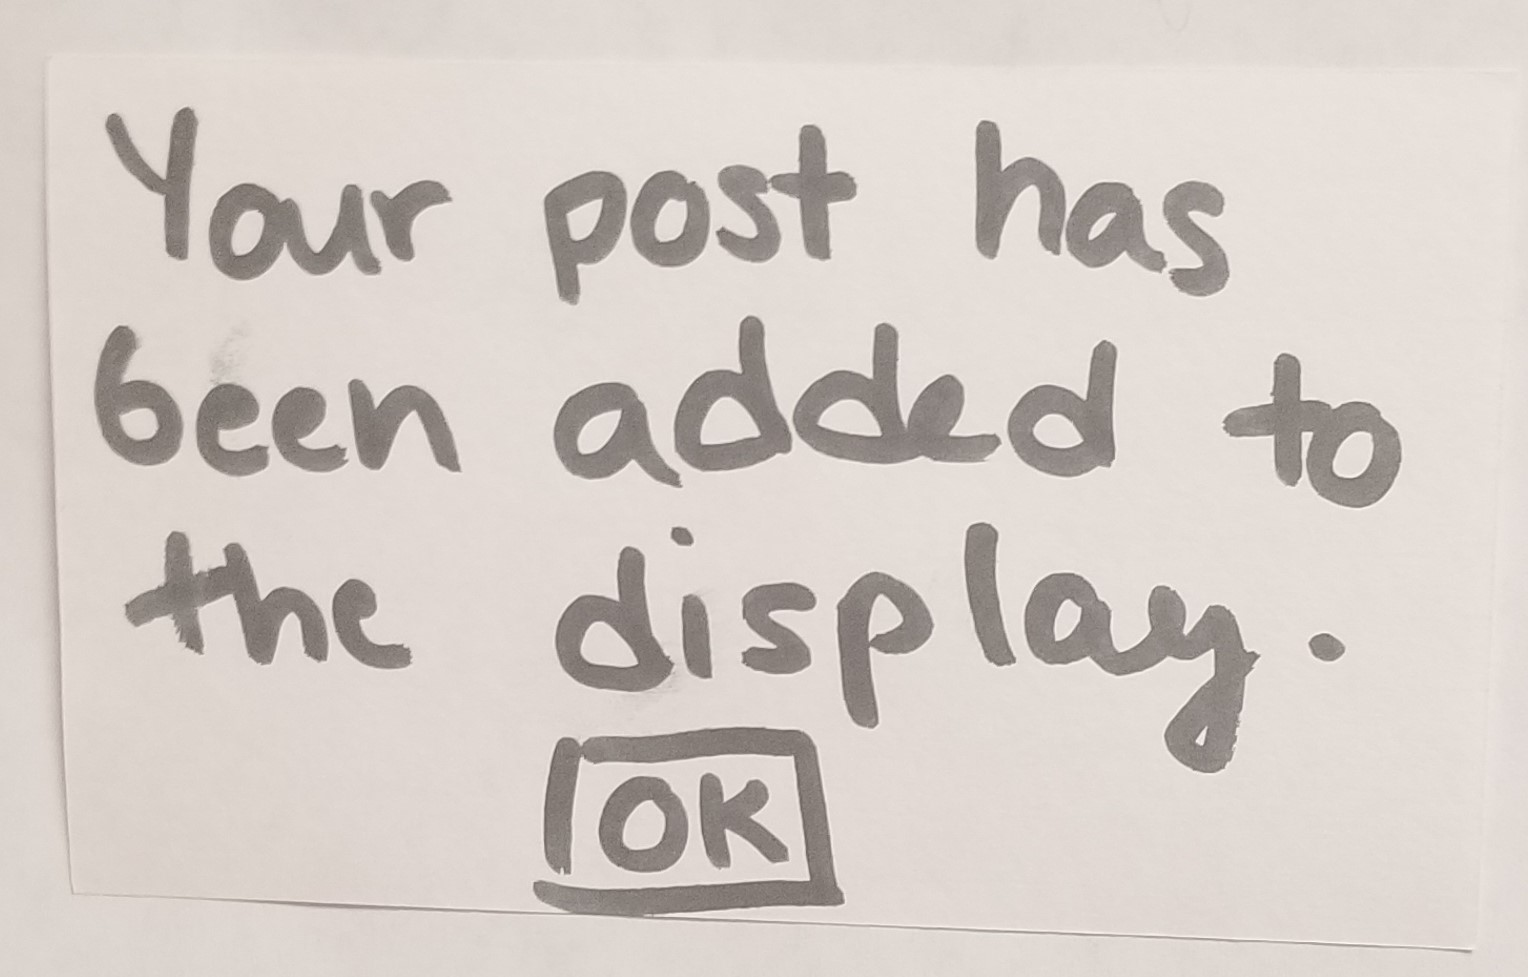 Your post has
been added to
the display.
OK